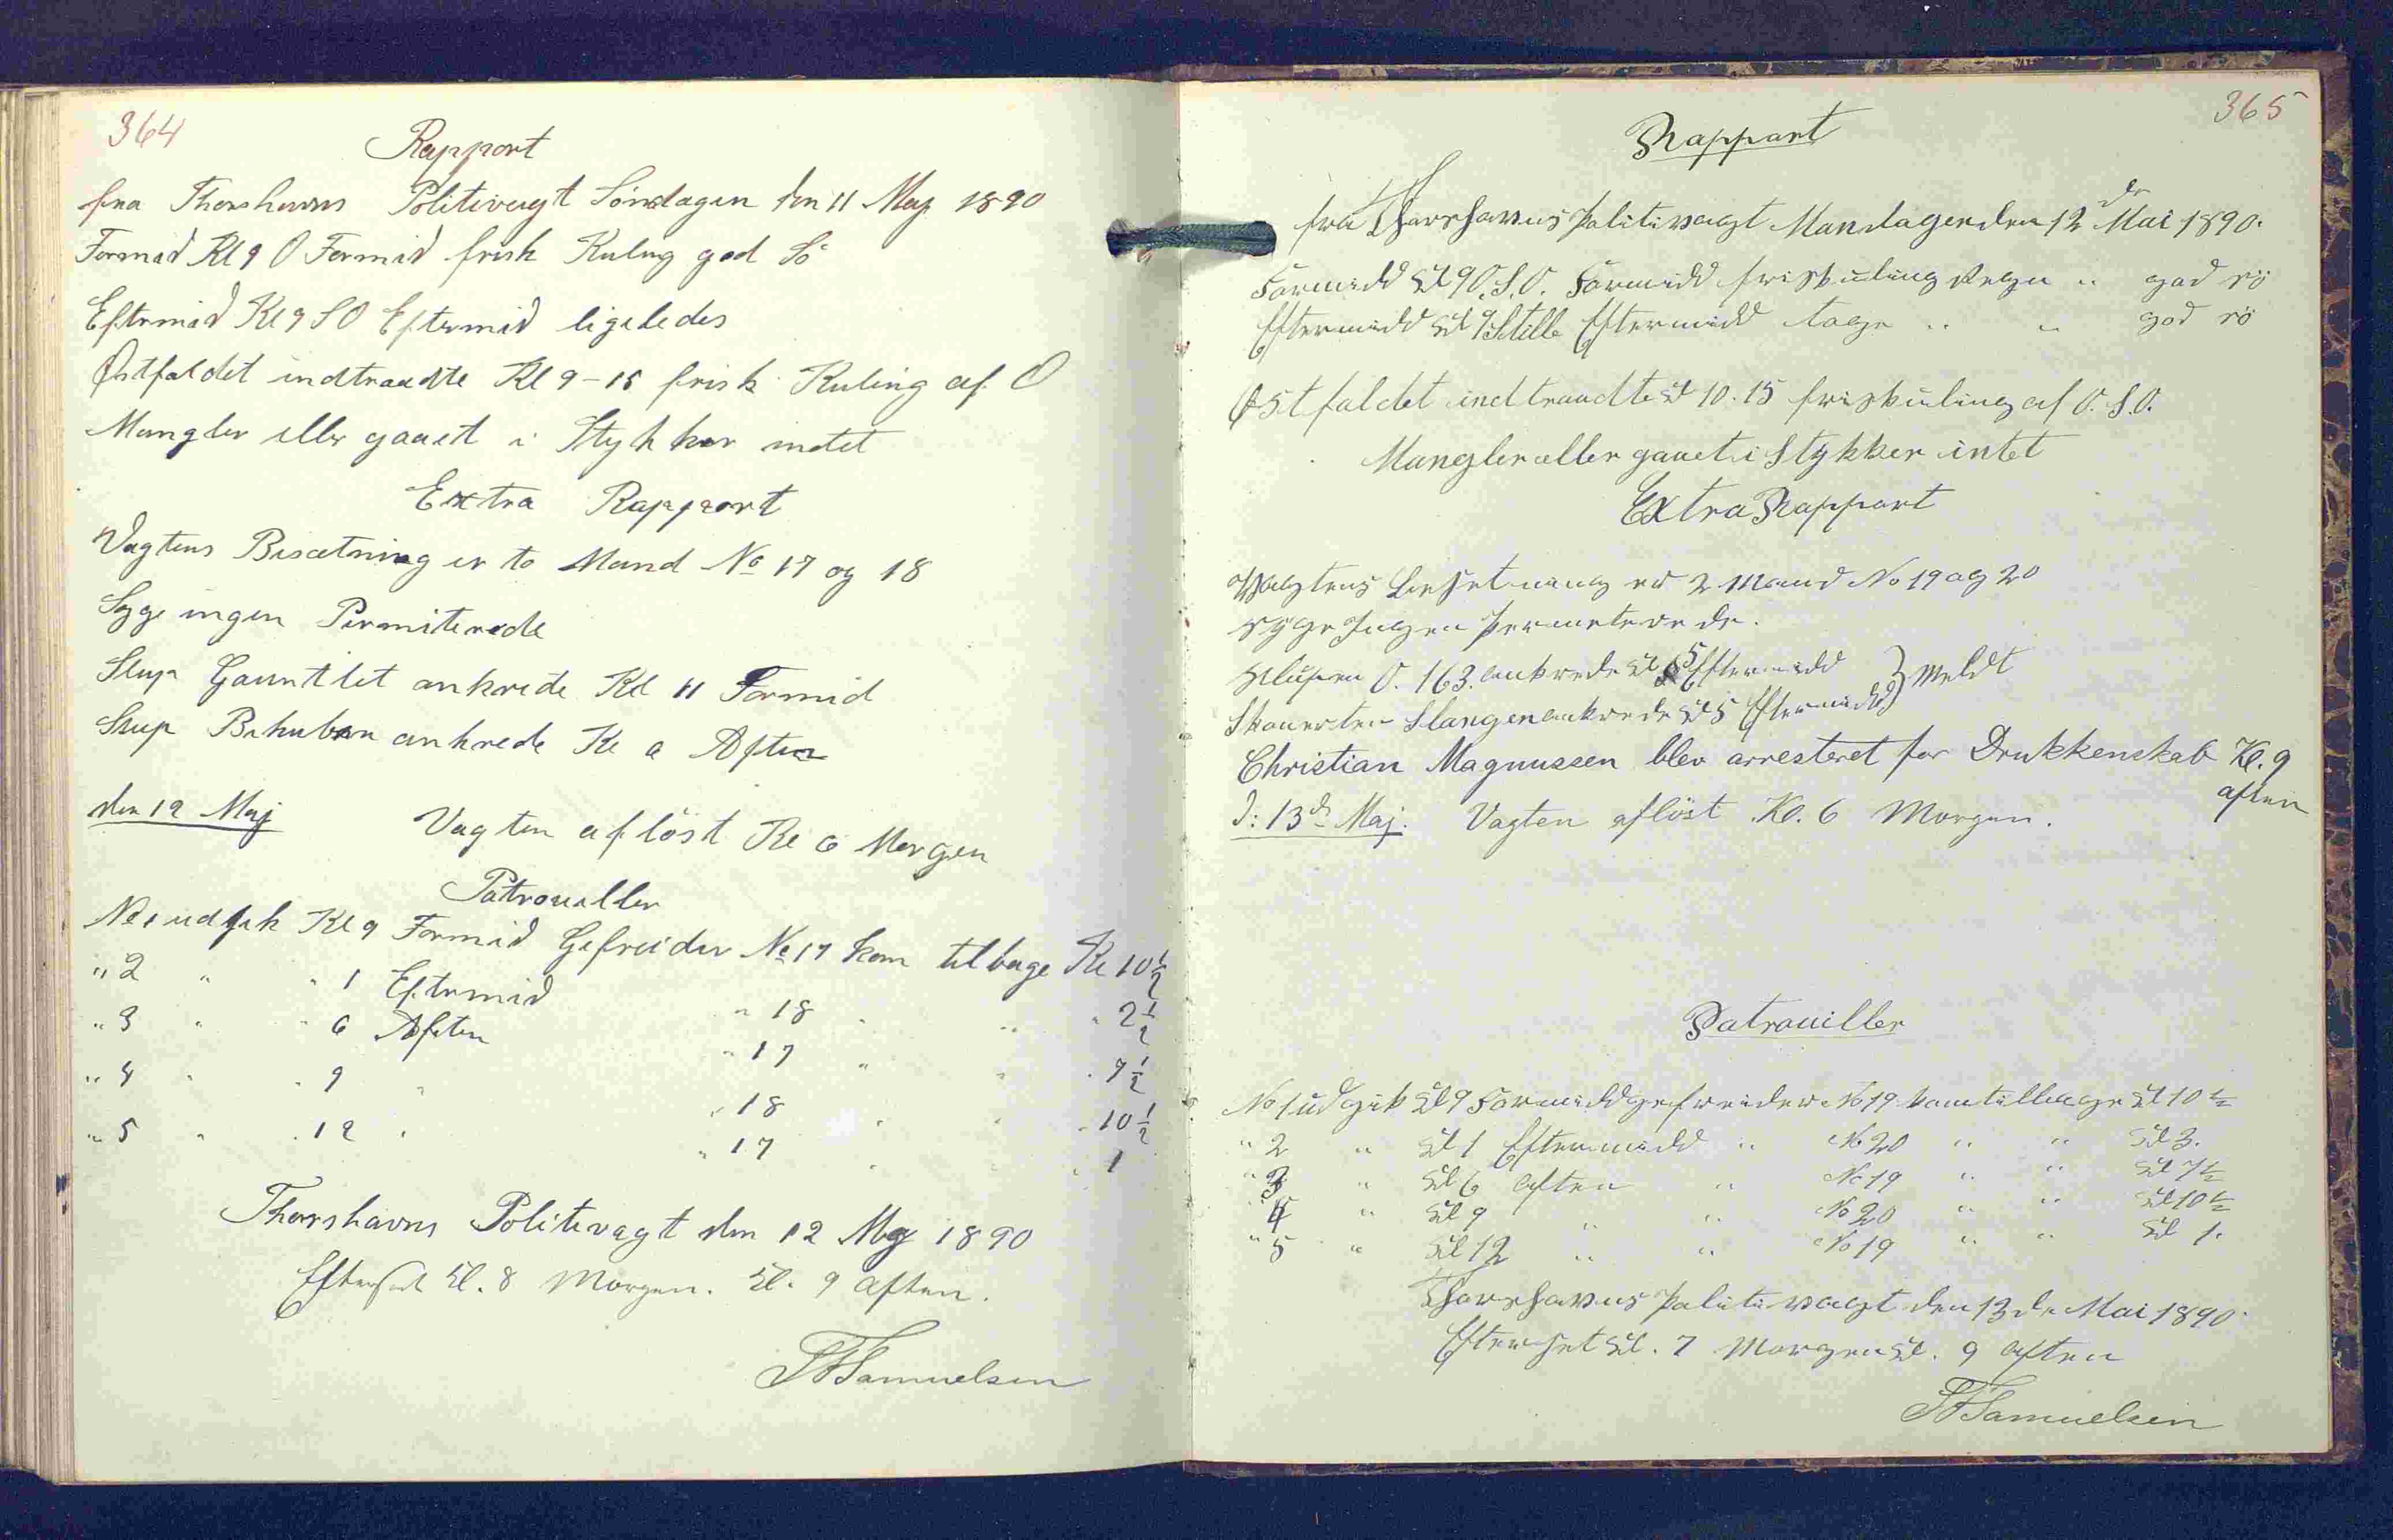 364
Rapport
fra Thorshavns Politivagt Söndagen den 11 Maj 1890
Formid Kl 9 O Formid frisk Kuling god Sö
Eftermid Kl 9 SO Eftermid ligeledes
Østfaldet indtraadte Kl 9-15 frisk Kuling af O
Mangler eller gaaet i Stykker intet
Extra Rapport
Vagtens Besætning er to Mand No 17 og 18
Syge ingen Permiterede
Slup Gauntlet ankrede Kl 11 Formid
Slup ankrede Kl 6 Aften
den 12 Maj Vagten aflöst Kl 6 Morgen
Patrouiller
No 1 udgik Kl 9 Formid Gefreider No 17 kom tilbage Kl 10 1/2
" 2 " " 1 Eftermid " 18 " " " 2 1/2
" 3 " " 6 Aften " 17 " " " 7 1/2
" 4 " " 9 " " 18 " " " 10 1/2
" 5 " " 12 " " 17 " " " 1
Thorshavns Politivagt den 12 Maj 1890
Efterset Kl. 8 Morgen. Kl. 9 Aften.
Samuelsen
365
Rapport
fra Thorshavns Politivagt Mandagen den 12 de Mai 1890.
Formidd Kl 9 O.S.O. Formidd friskuling Regn " god sö
Eftermidd Kl 9 Stille Eftermidd tage " " god sö
Østfaldet indtraadte Kl 10.15 friskuling af O.S.O.
Mangler eller gaaet i Stykker intet
Extra Rapport
Vagtens besetning er 2 Mand No 19 og 20
syge Ingen Permeterede.
Slupen O. 163. ankrede Kl 5 Eftermidd } Meldt
Skonerten Slangen ankrede Kl 5 Eftermidd }
Christian Magnussen blev arresteret for Drukkenskab Kl. 9
aften
d: 13 de Maj. Vagten aflöst Kl. 6 Morgen.
Patrouiller
No 1 udgik Kl 9 Formidd gefreider No 19 kom tilbage Kl 10 1/2
" 2 " Kl 1 Eftermidd " No 20 " " Kl 3.
" 3 " Kl 6 Aften " No 19 " " Kl 7 1/2
" 4 " Kl 9 " " No 20 " " Kl 10 1/2
" 5 " Kl 12 " " No 19 " " Kl 1.
Thorshavns Politivagt den 13 de Mai 1890.
Efterset Kl. 7 Morgen Kl. 9 Aften
Samuelsen